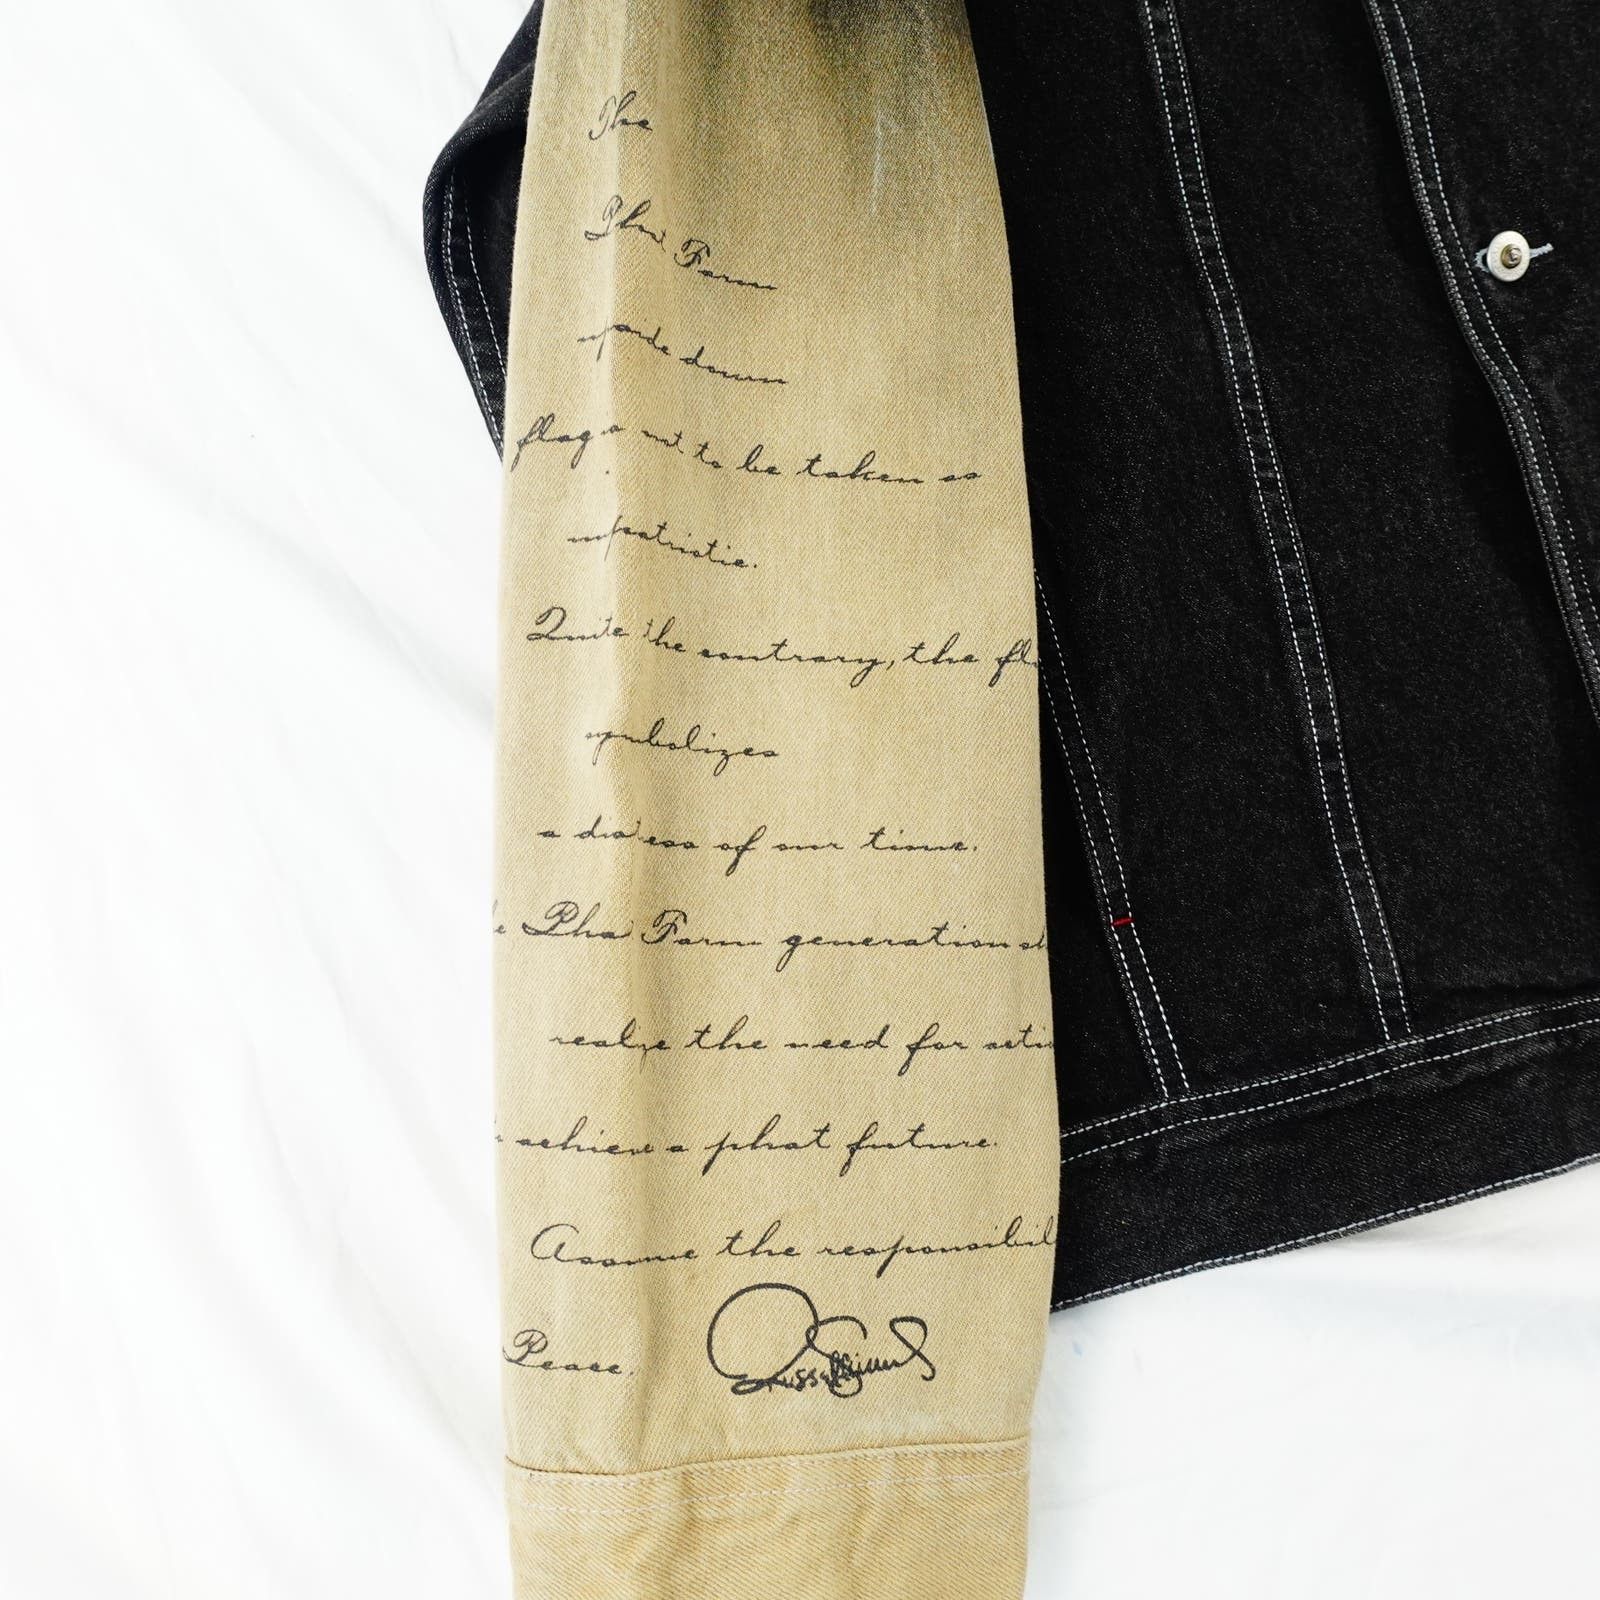 The
Phat Farm
upside down
flag is not to be taken as
unpatriotic.
Quite the contrary, the fla
symbolizes
a distress of our time.
e Phat Farm generation sh
realize the need for acti
achieve a phat future.
Assume the responsibil
Peace. Russell Simmons